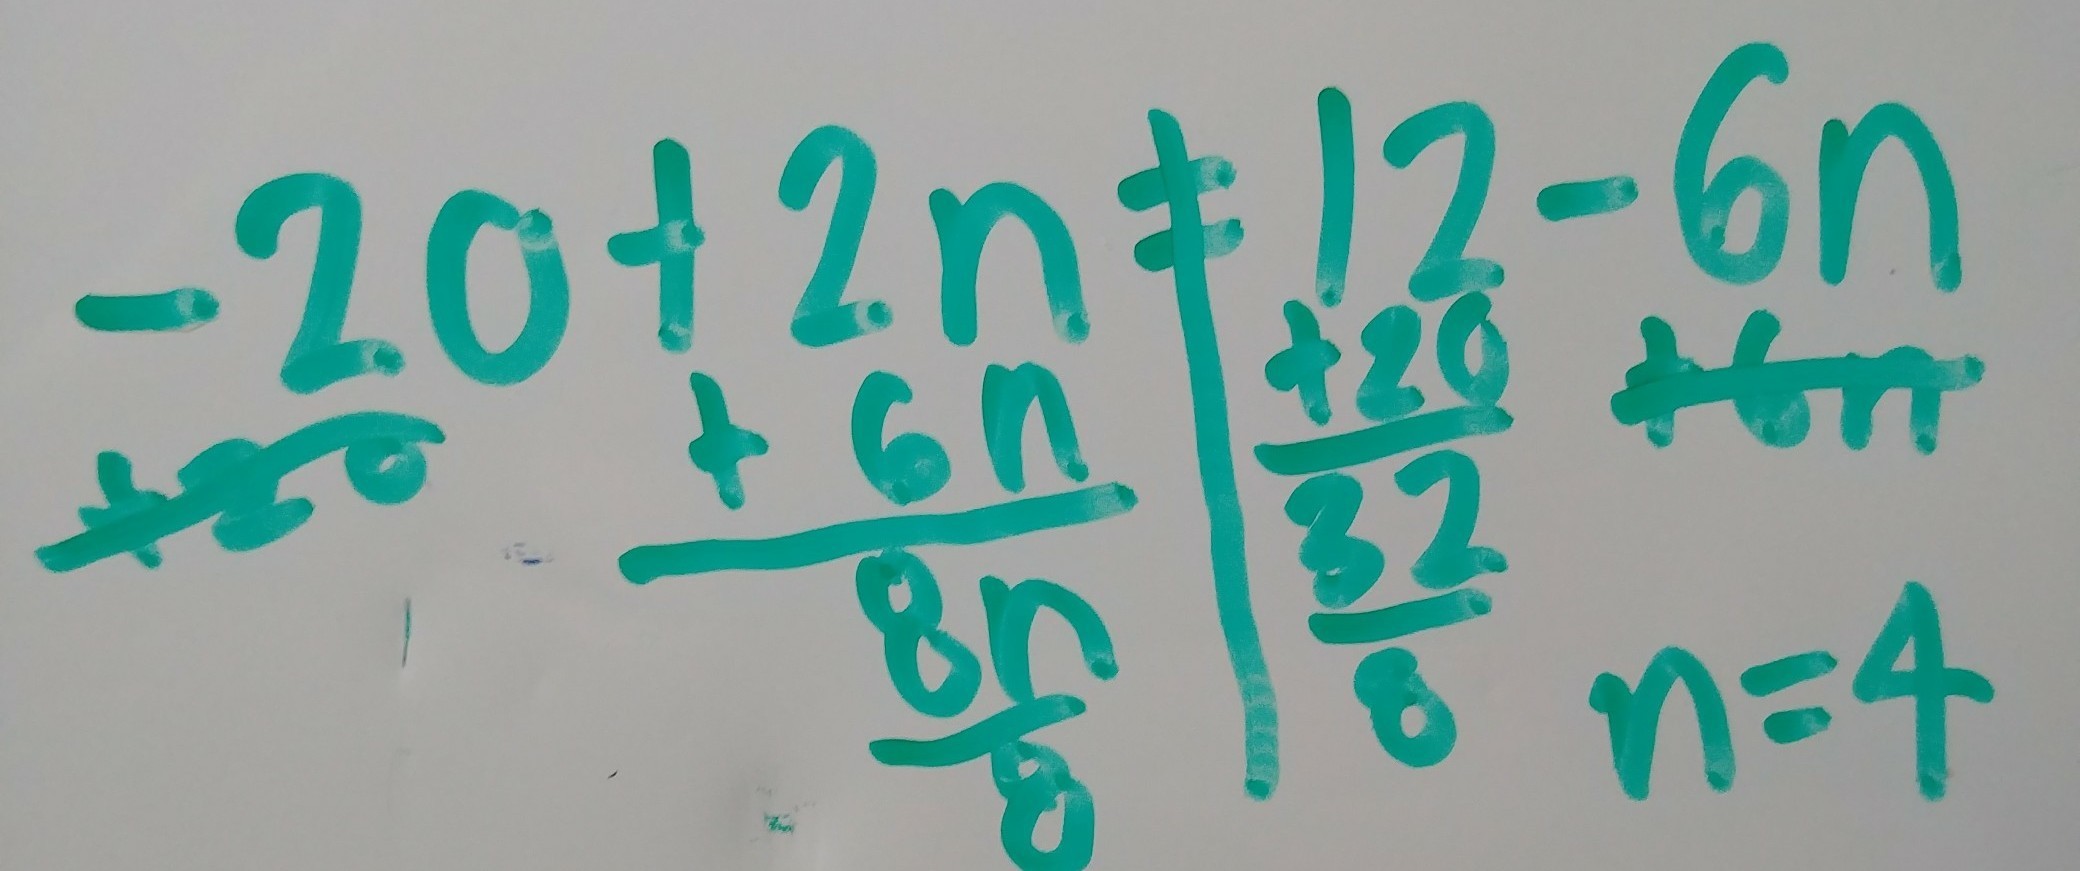 -20 + 2n = 12 - 6n
+20 + 6n +20 +6n
8n 32
8 8
n = 4